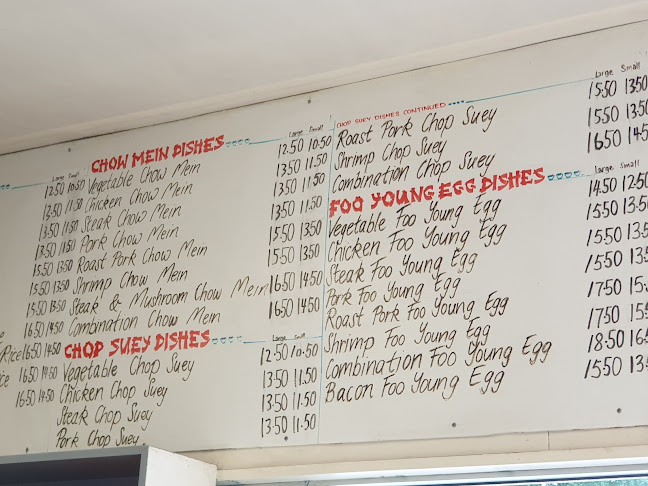 Large Small
12.50 10.50
13.50 11.50
13.50 11.50
13.50 11.50
15.50 13.50
15.50 13.50
15.50 13.50
16.50 14.50
Rice 16.50 14.50
16.50 14.50
16.50 14.50
CHOW MEIN DISHES Large Small
Vegetable Chow Mein 12.50 10.50
Chicken Chow Mein 13.50 11.50
Steak Chow Mein 13.50 11.50
Pork Chow Mein 13.50 11.50
Roast Pork Chow Mein 15.50 13.50
Shrimp Chow Mein 15.50 13.50
Steak & Mushroom Chow Mein 16.50 14.50
Combination Chow Mein 16.50 14.50
CHOP SUEY DISHES Large Small
Vegetable Chop Suey 12.50 10.50
Chicken Chop Suey 13.50 11.50
Steak Chop Suey 13.50 11.50
Pork Chop Suey 13.50 11.50
CHOP SUEY DISHES CONTINUED Large Small
Roast Pork Chop Suey 15.50 13.50
Shrimp Chop Suey 15.50 13.50
Combination Chop Suey 16.50 14.5
FOO YOUNG EGG DISHES Large Small
Vegetable Foo Young Egg 14.50 12.50
Chicken Foo Young Egg 15.50 13.5
Steak Foo Young Egg 15.50 13.5
Pork Foo Young Egg 15.50 13.
Roast Pork Foo Young Egg 17.50 15.
Shrimp Foo Young Egg 17.50 15
Combination Foo Young Egg 18.50 16.
Bacon Foo Young Egg 15.50 13.